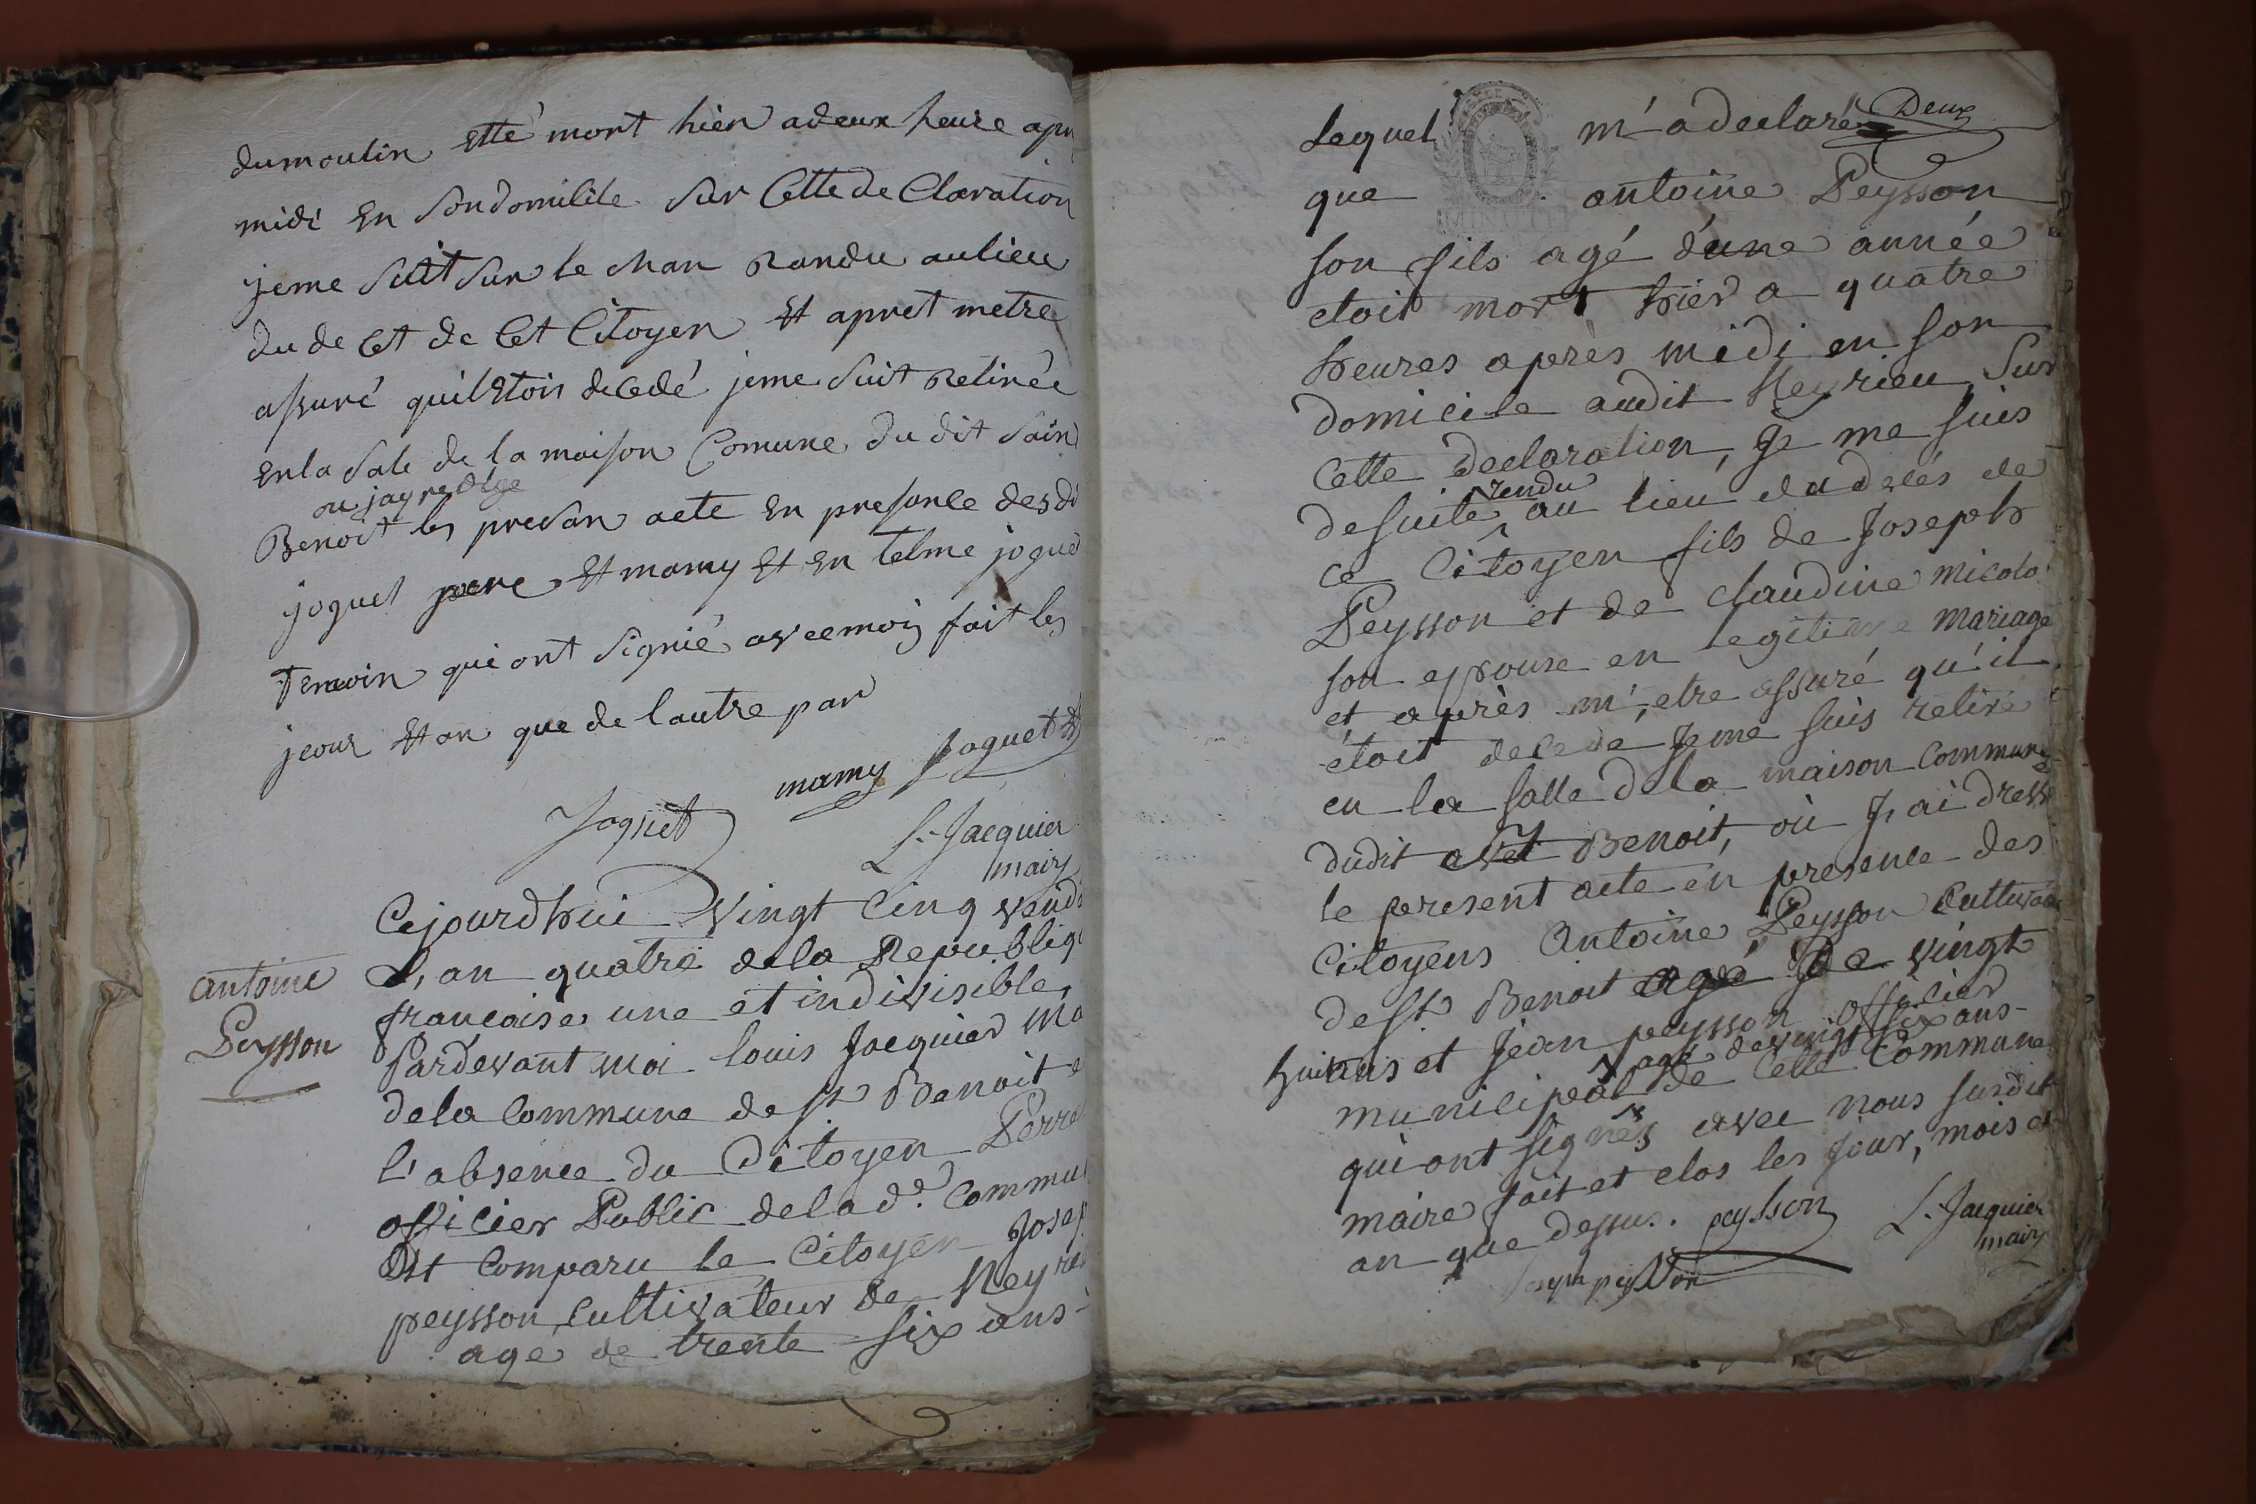 dumoulin etté mort hier adeux heure apr
midi En Son domilile Sur Cette de Claration
jeme Suit Sur le chan Randu au lieu
du de Cet de Cet Citoyen Et apret metre
assuré quil Etois decedé jeme Suit Retirée
En la Sale de la maison Comune du dit Sain
ou jay redigé
Benoit les presan acte En presanle des di
joguet pere Et mamy Et En telme joguet
Temoin qui ont Signié avecmoi fait les
jeour Et an que de lautre par
mamy Joguet
Joguet
L. Jacquier
maire
antoine
Peysson
Cejourdhui vingt Cinq vend
L'an quatre dela Republiqu
francaise une et indivisible,
Pardevant moi louis Jacquier ma
dela Commune de St Benoit e
l'absence du Citoyen Perre
officier Public dela de. Commu
Est Comparu le Citoyen Josep
peysson, Cultivateur de Neyrie
agé de trente six ans
Deux
Lequel m'a declaré
que antoine Peysson
son fils agé d'une année
etoit mort hier a quatre
heures après midi en son
domicile audit Neyrieu, Sur
Cette declaration, Je me suis
rendu
desuite au lieu dudecés de
ce Citoyen fils de Joseph
Peysson et de claudine micolo
son epouse en legitime mariage
et après m'etre assuré qu'il
étoit decede Je me suis retiré
en la salle dela maison Commune
dudit Benoit, où J'ai dressé
le present acte en presence des
Citoyens Antoine Peysson Cultivat
de St Benoit agé de vingt
huit ans et Jean peysson officier
agé de vingt six ans
municipal de Cette Commune
qui ont signés avec nous susdit
maire fait et clos les Jour, mois et
an que dessus. peysson
L. Jacquier
maire
Joseph peysson